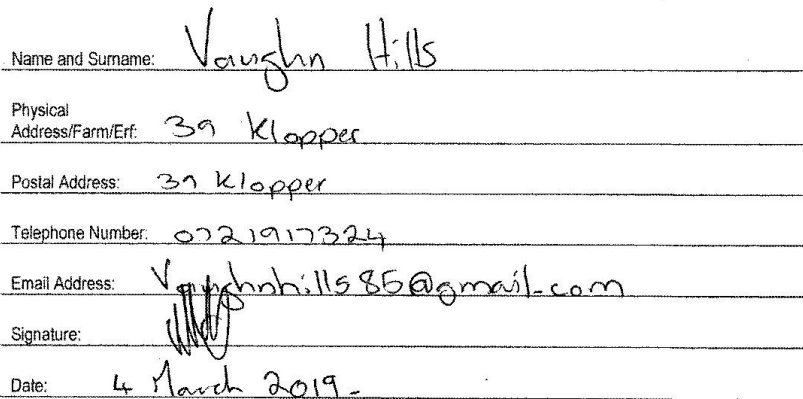 Name and Surname: Vaughn Hills
Physical
Address/Farm/Erf: 39 Klopper
Postal Address: 39 Klopper
Telephone Number: 0721917324
Email Address: Vaughnhills85@gmail.com
Signature:
Date: 4 March 2019-